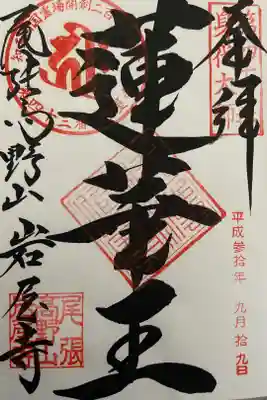 奉拝
平成参拾年 九月拾九日
蓮華王
尾張高野山 岩屋寺
尾張
高野山